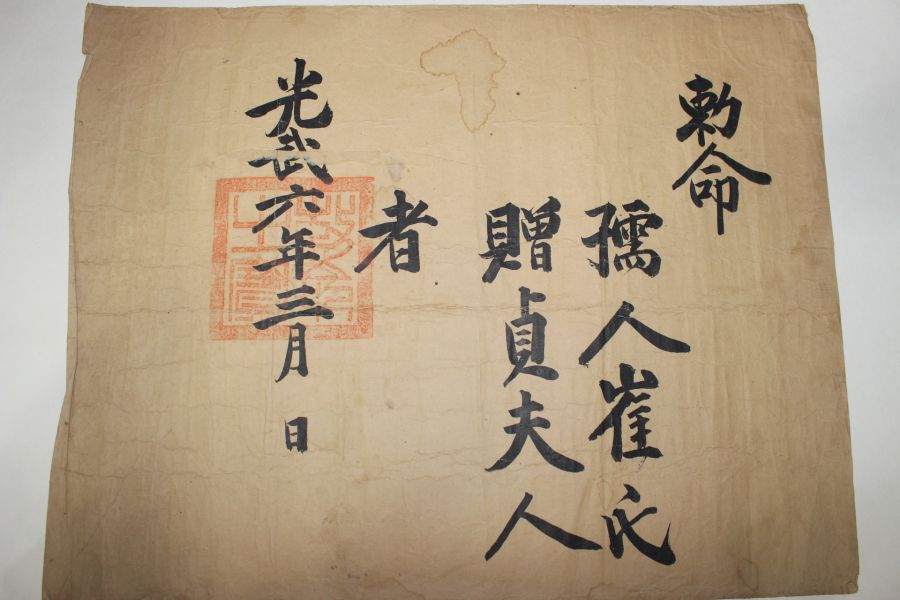 勅命
孺人崔氏
贈貞夫人
者
光武六年三月 日